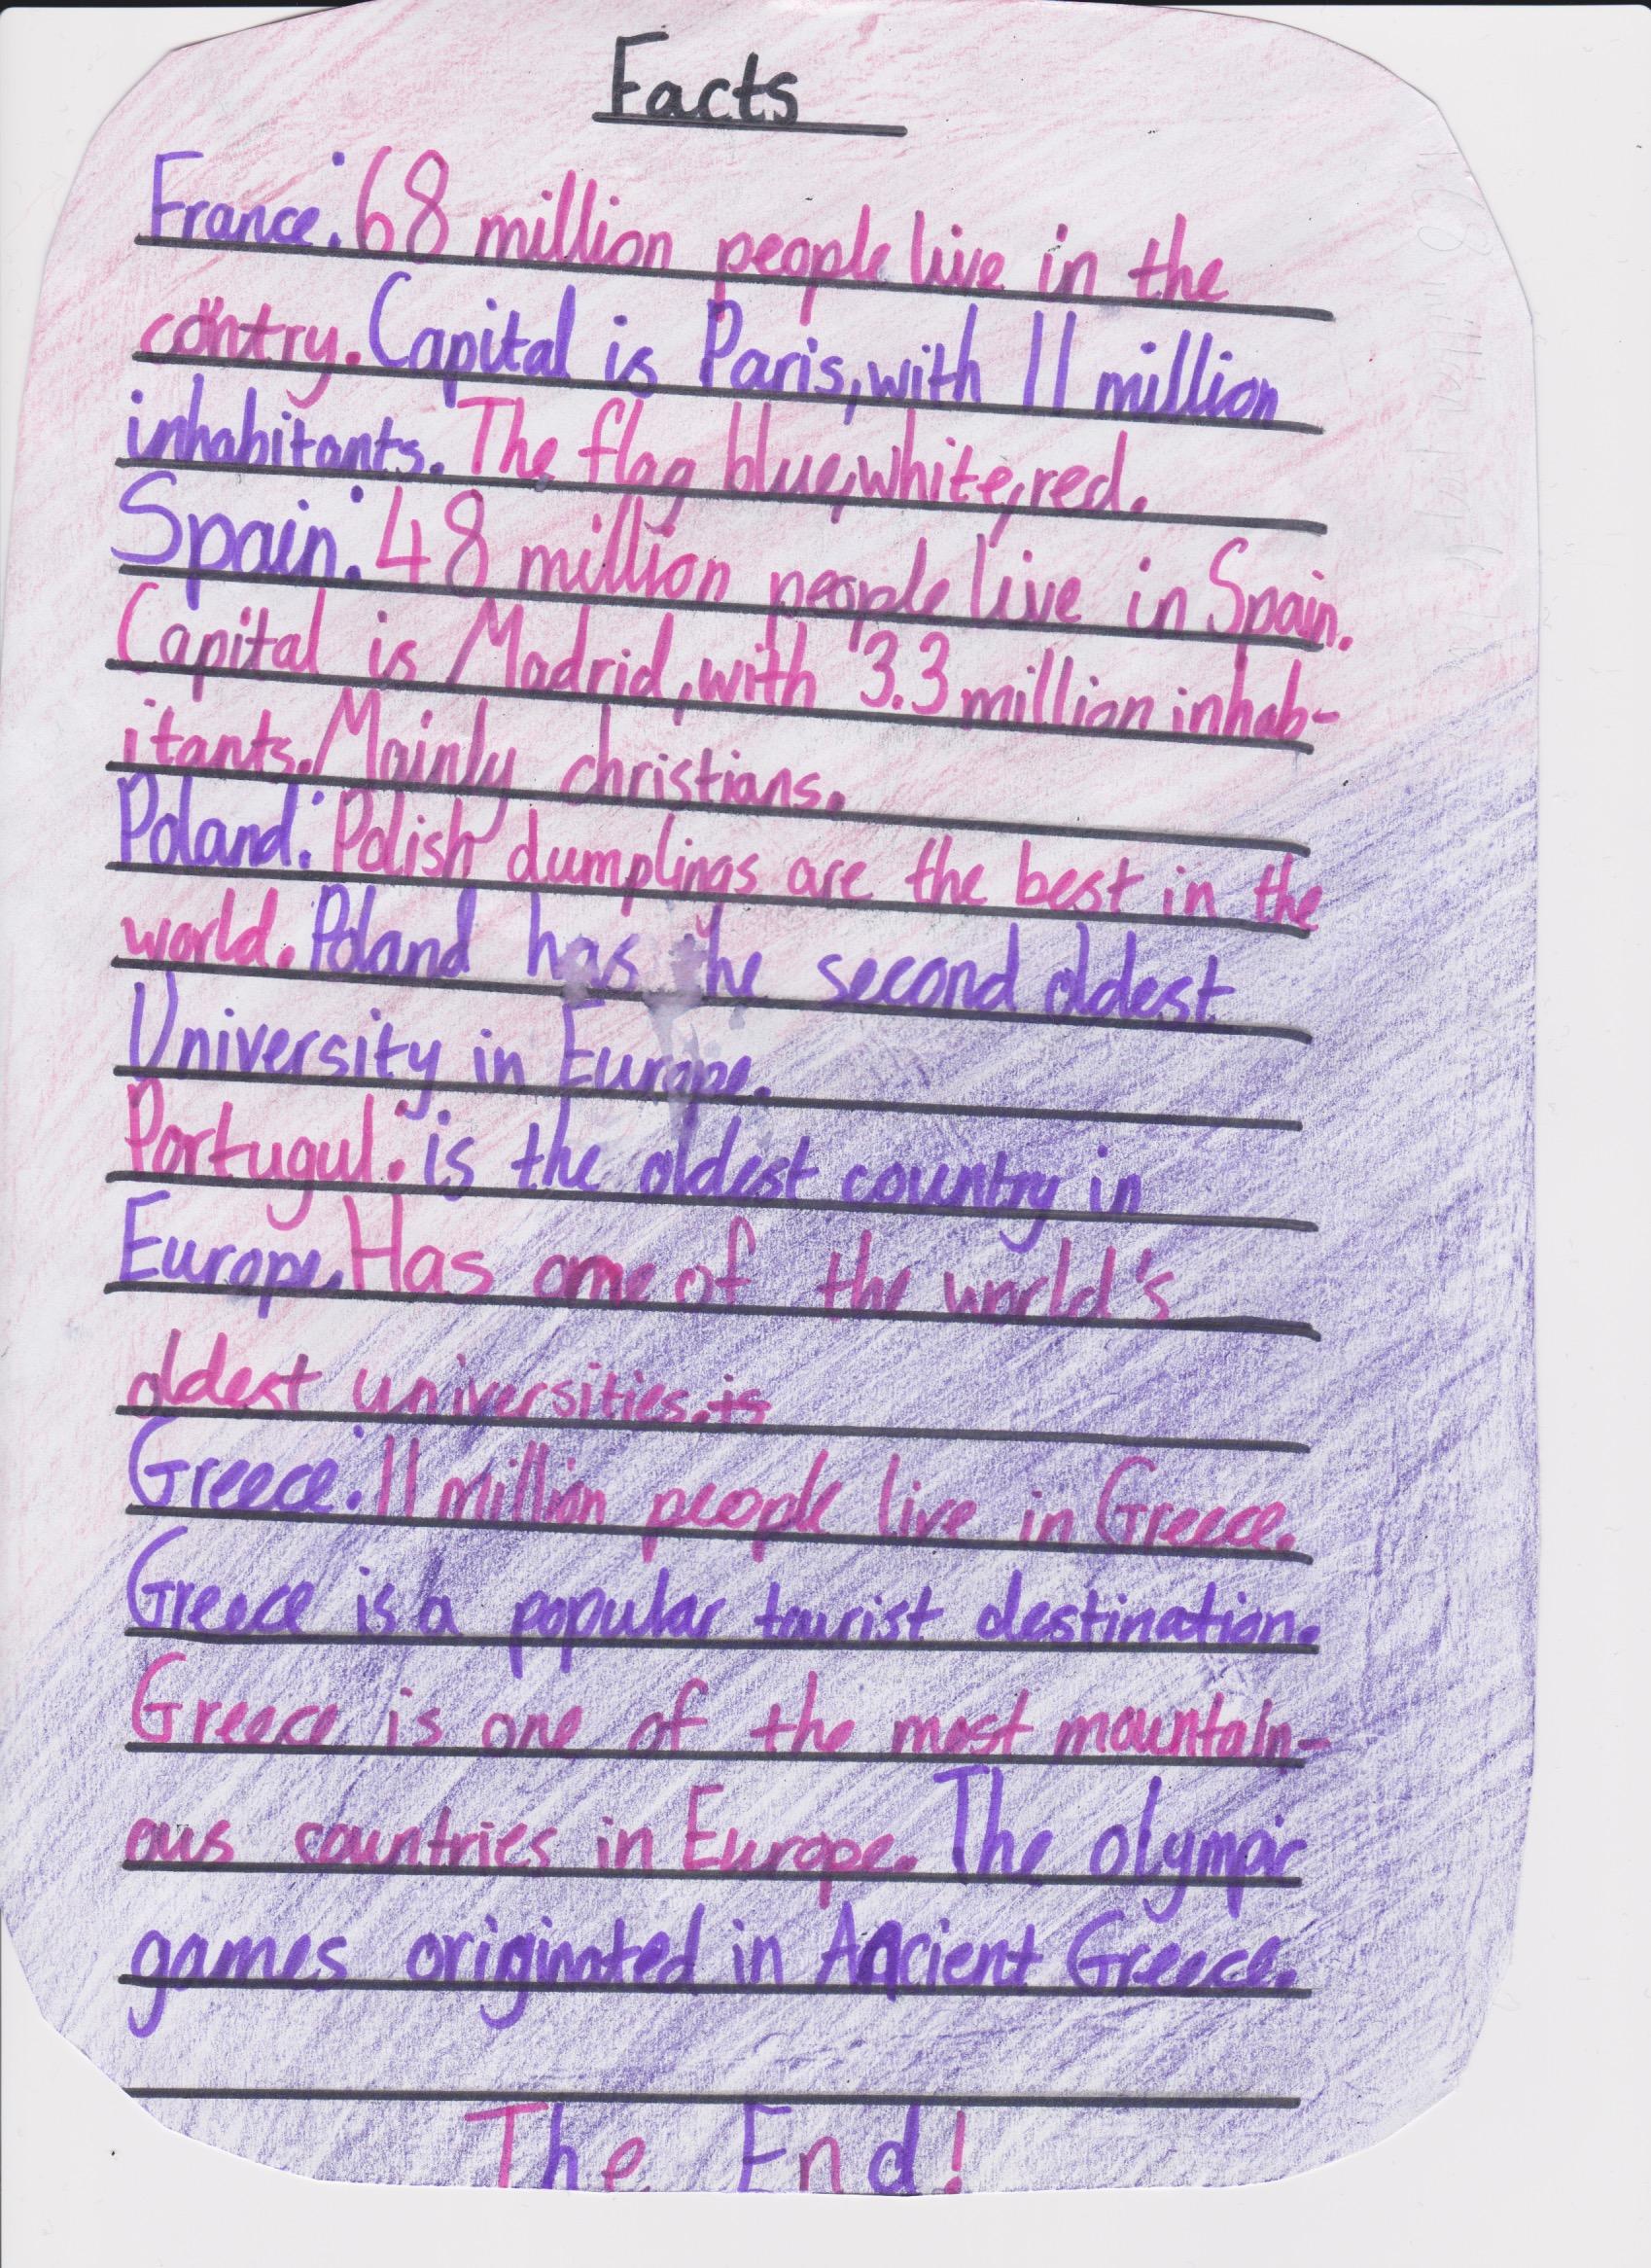 Facts
France: 68 million people live in the
contry. Capital is Paris, with 11 million
inhabitants. The flag blue, white, red.
Spain: 48 million people live in Spain.
Capital is Madrid, with 3.3 million inhab-
itants. Mainly christians.
Poland: Polish dumplings are the best in the
world. Poland has the second oldest
University in Europe.
Portugul: is the oldest country in
Europe. Has one of the world's
oldest universities. is
Greece: 11 million people live in Greece.
Greece is a popular tourist destination.
Greece is one of the most mountain-
ous countries in Europe. The olympic
games originated in Ancient Greece.
The End!